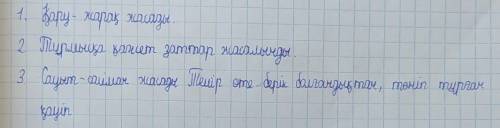 1. Қару-жарақ жасады.
2 Тұрмысқа қажет заттар жасалынды.
3 Сауыт-сайман жасады Темір өте берік болғандықтан, төніп тұрған
қауіп